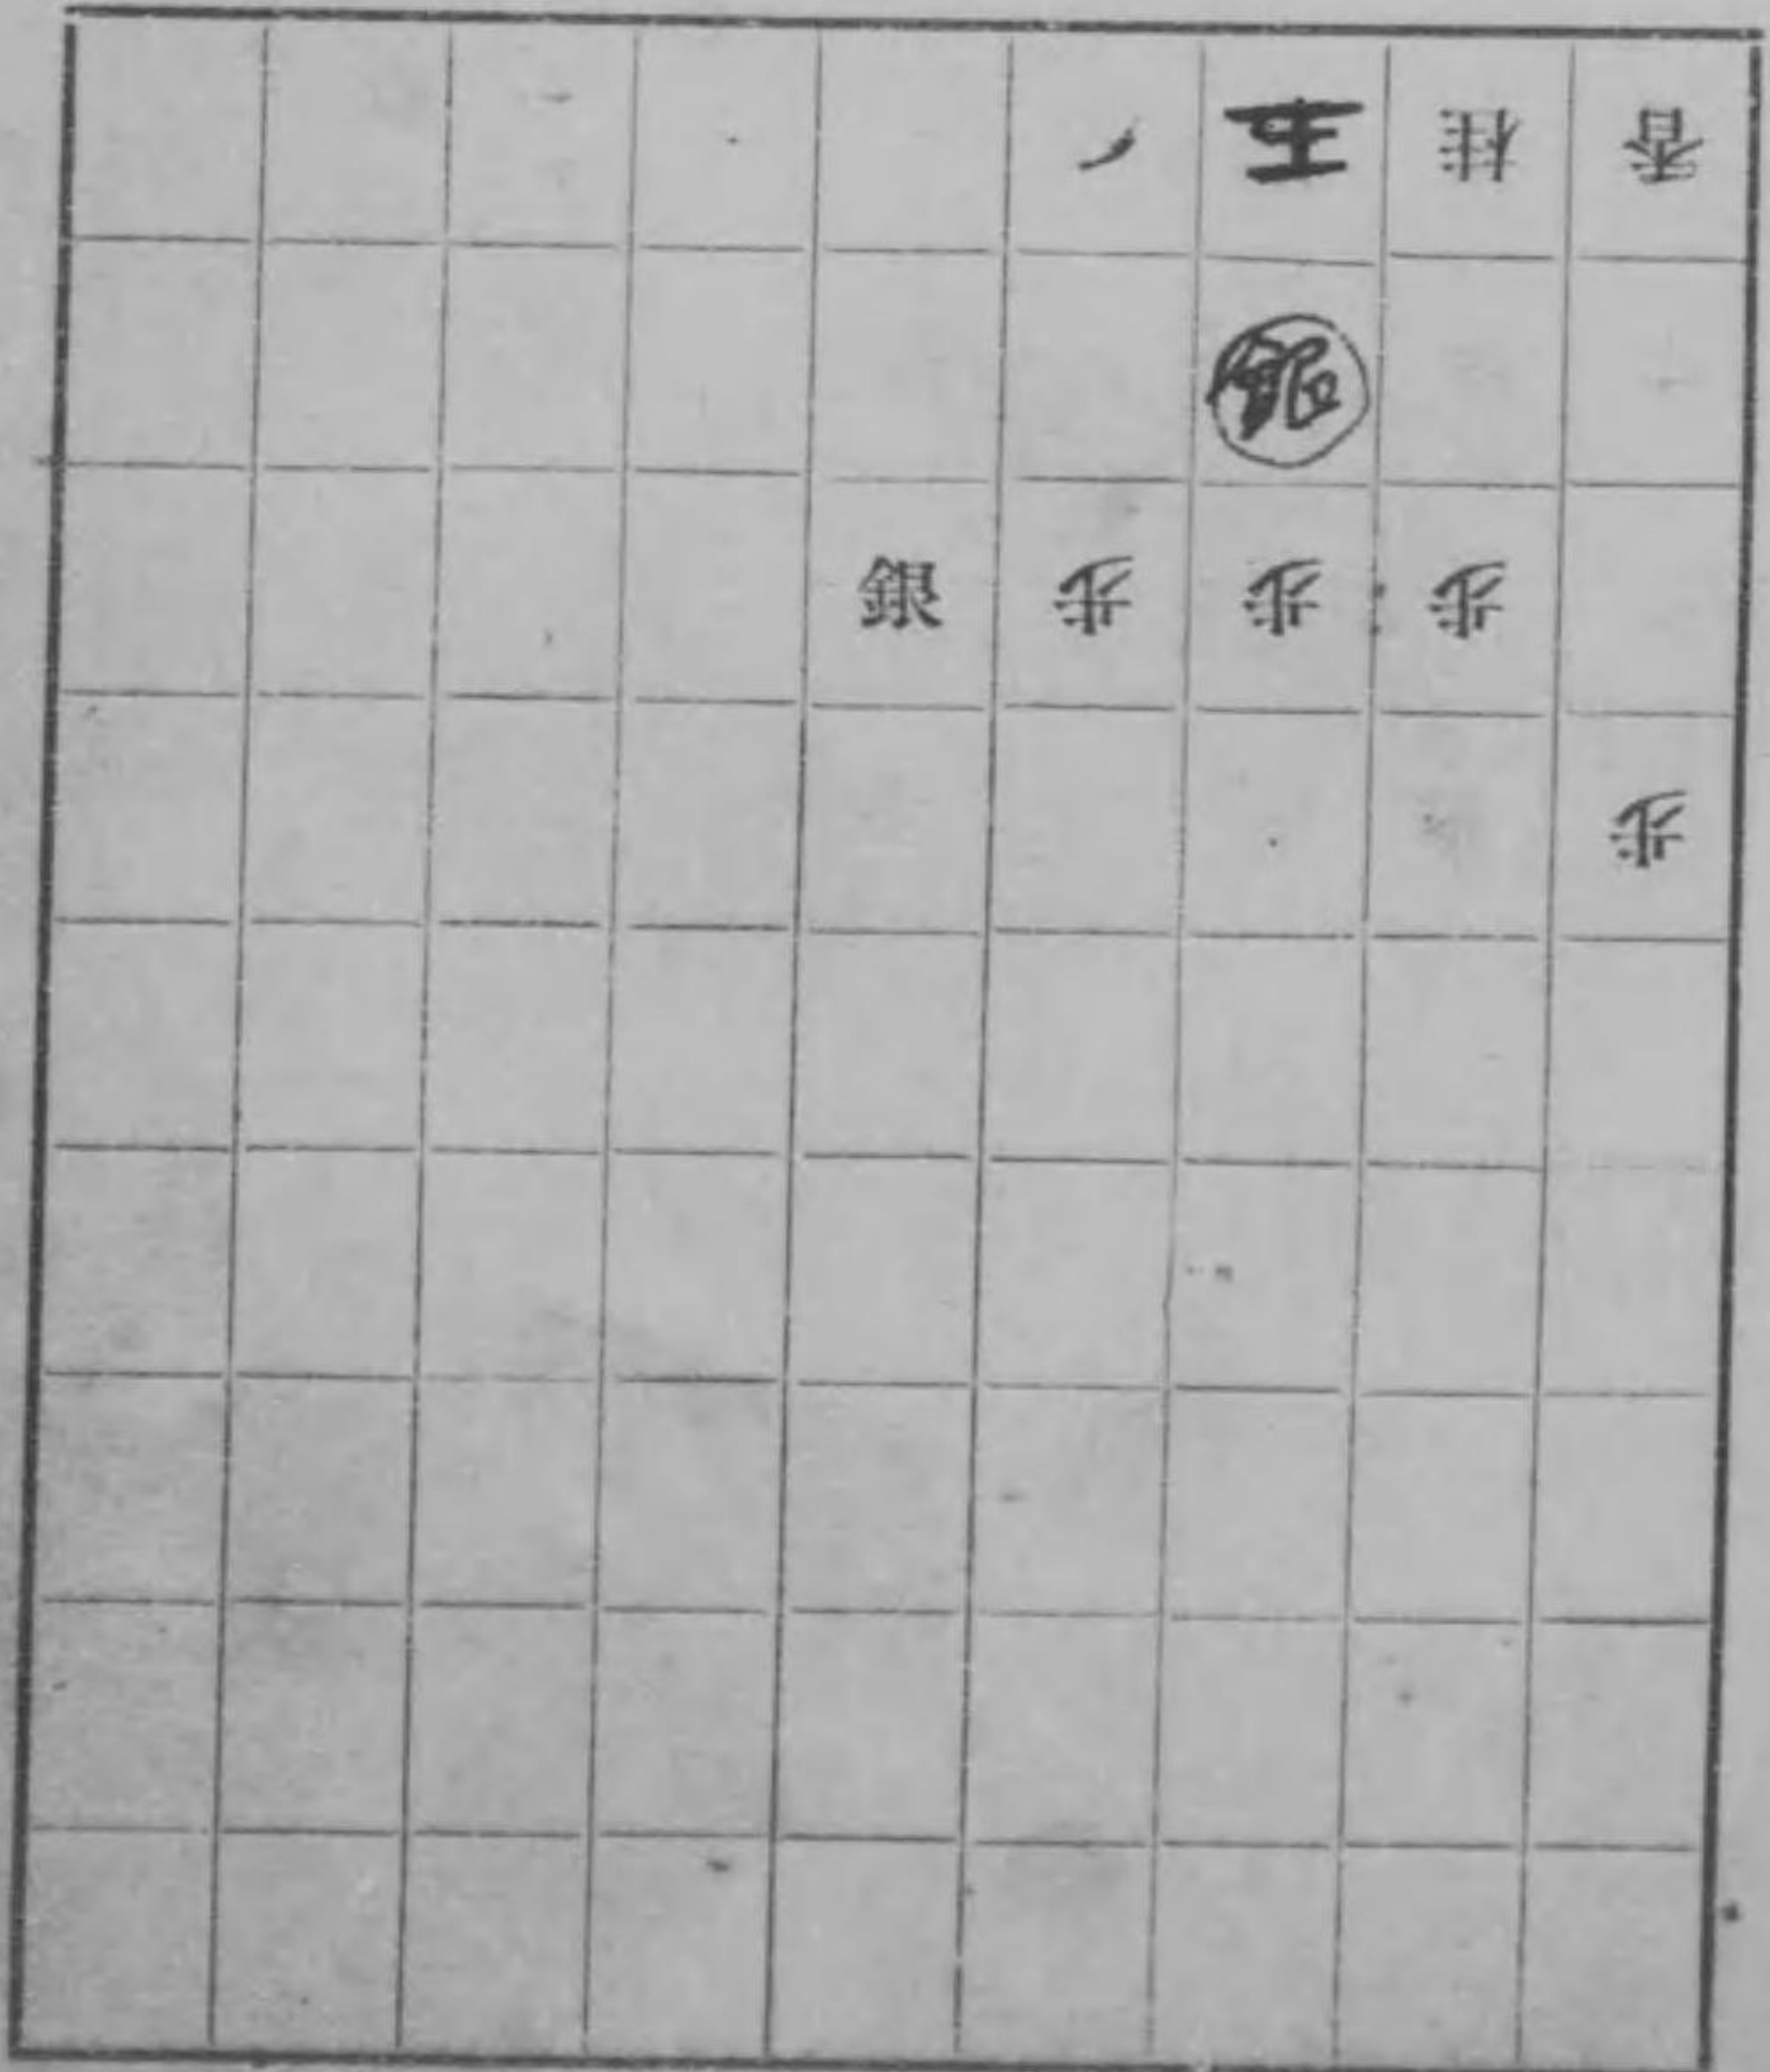 王 桂 香
銀
銀 歩 歩 歩
歩